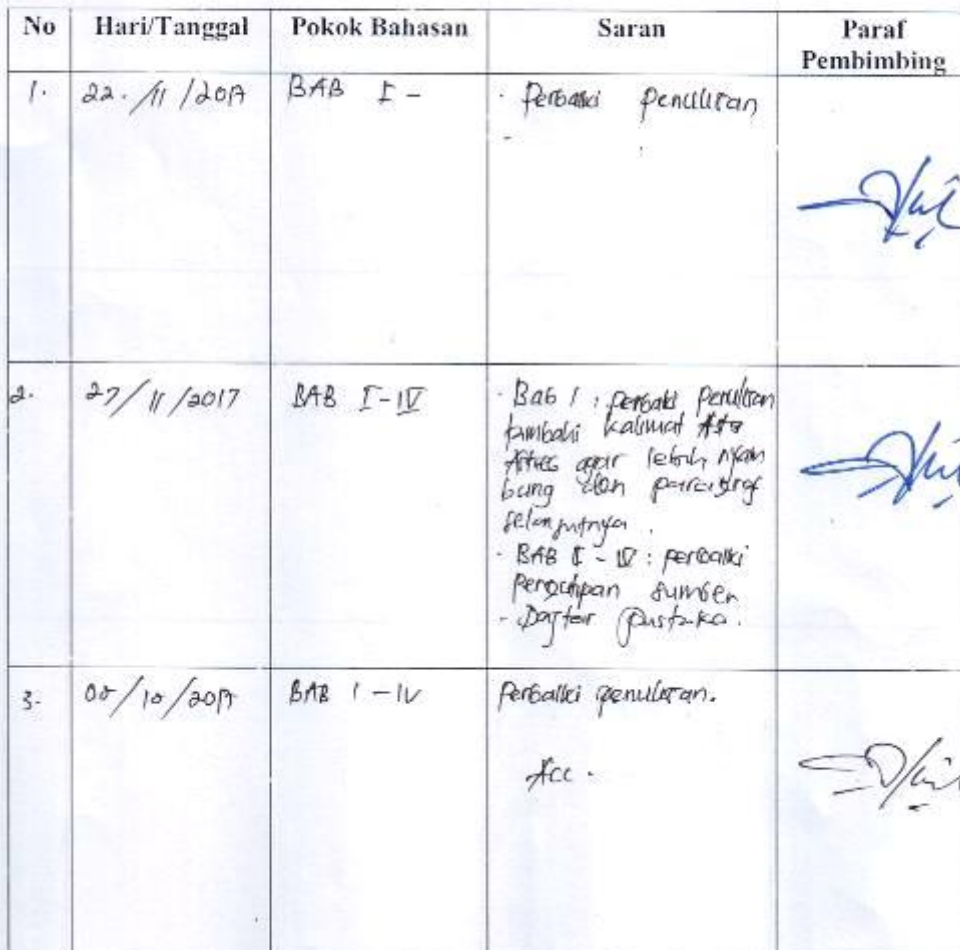 No Hari/Tanggal Pokok Bahasan Saran Paraf Pembimbing
1. 22. /11 /2017 BAB I - · Perbaiki penulisan
-
2. 27/11/2017 BAB I-IV · Bab 1 : perbaiki penulisan
tambahi kalimat
agar lebih nyam
bung dan paragraf
selanjutnya.
· BAB II - IV : perbaiki
Pengutipan sumber
- Daftar Pustaka.
3. /10/2017 BAB I - IV Perbaiki penulisan.
Acc.